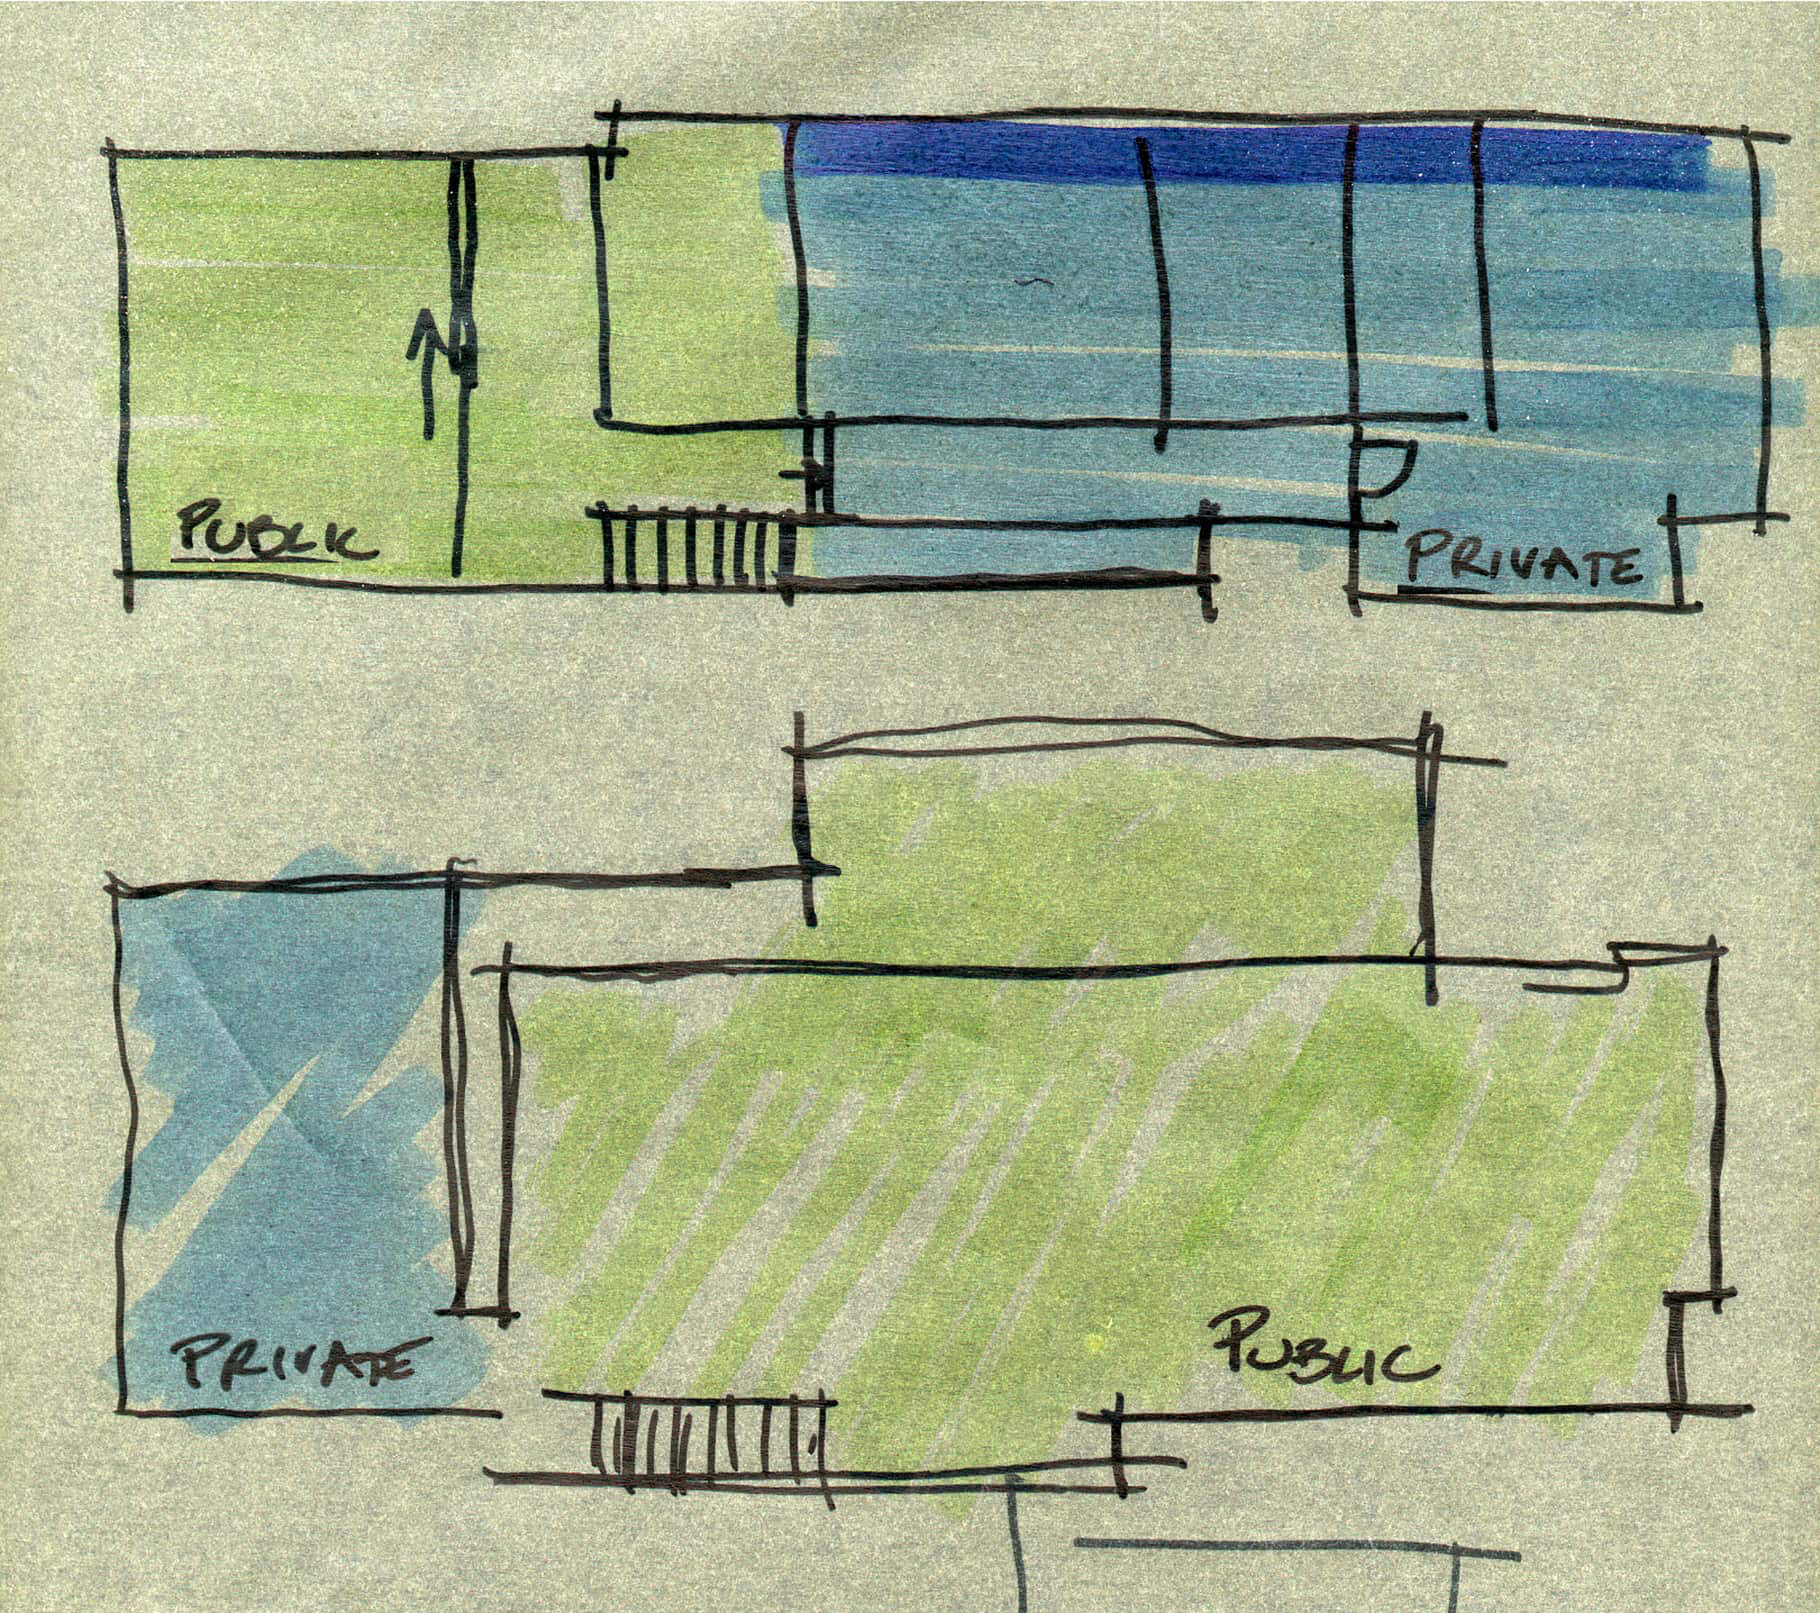 PUBLIC
PRIVATE
PRIVATE
PUBLIC